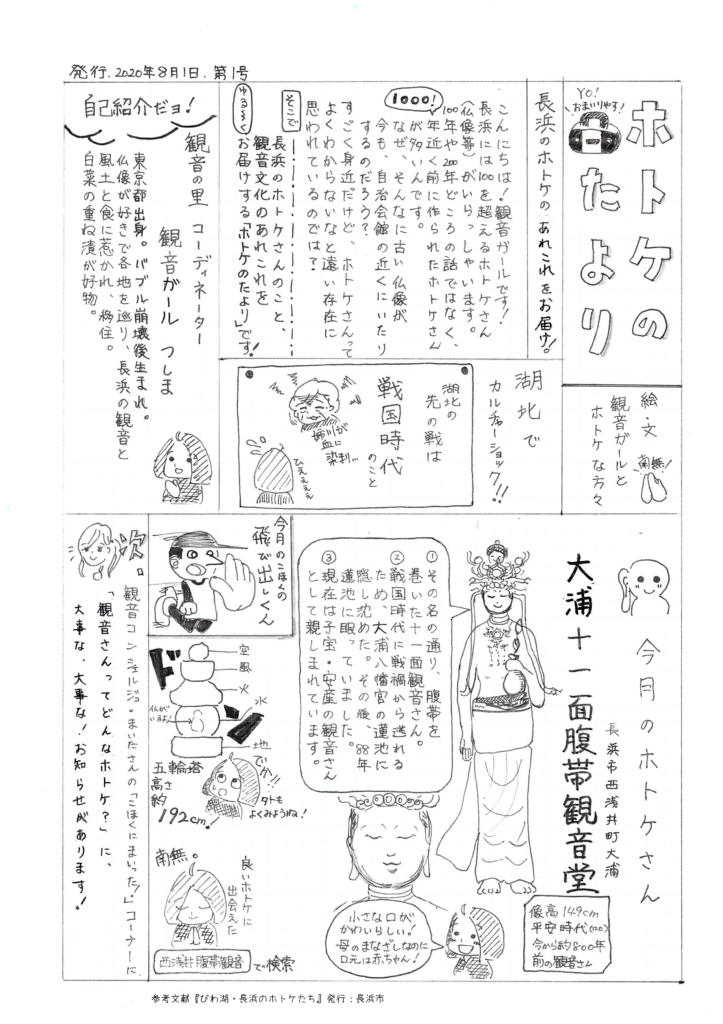 発行.2020年8月1日.第1号
ホトケの
たより
YO!
おまいりやす!
長浜のホトケのあれこれをお届け!
絵・文
観音ガールと
ホトケな方々
南無!
こんにちは!観音ガールです!
長浜には100を超えるホトケさん
(仏像等)がいらっしゃいます。
100年や200年どころの話ではなく、
1000!
年近く前に作られたホトケさん
が多いんです。
なぜ、そんなに古い仏像が
今も、自治会館の近くにいたり
するのだろう?
すごく身近だけど、ホトケさんって
よくわからないなと遠い存在に
思われているのでは?
そこで
長浜のホトケさんのこと、
観音文化のあれこれを
ゆるく
お届けする「ホトケのたより」です!
自己紹介だョ!
観音の里 コーディネーター
観音ガール つしま
東京都出身。バブル崩壊後生まれ。
仏像が好きで各地を巡り、長浜の観音と
風土と食に惹かれ、移住。
白菜の重ね漬が好物。
湖北で
カルチャーショック!!
湖北の
先の戦は
戦国時代
のこと
姉川が
血に
染まり…
ひえぇぇぇ
今月のホトケさん
長浜市西浅井町大浦
大浦十一面腹帯観音堂
像高149cm
平安時代(12C)
今から約800年
前の観音さん
①その名の通り、腹帯を
巻いた十一面観音さん。
②戦国時代に戦禍から逃れる
ため、大浦八幡宮の蓮池に
隠し沈めた。その後、88年
蓮池に眠っていました。
③現在は子宝・安産の観音さん
として親しまれています。
小さな口が
かわいらしい!
母のまなざしなのに
口元は赤ちゃん!
今月のこほくの
飛び出しくん
ドーン
空
風
火
水
地
仏がいるよ!
五輪塔
高さ
約
192cm!
でか!!
タトも
よくみようね!
良いホトケに
出会えた
南無。
西浅井腹帯観音 で検索
次。
観音コンシェルジュ・まいたさんの「こほくにまいった!」コーナーに
「観音さんってどんなホトケ?」に、
大事な、大事な!お知らせがあります!
参考文献『びわ湖・長浜のホトケたち』発行:長浜市